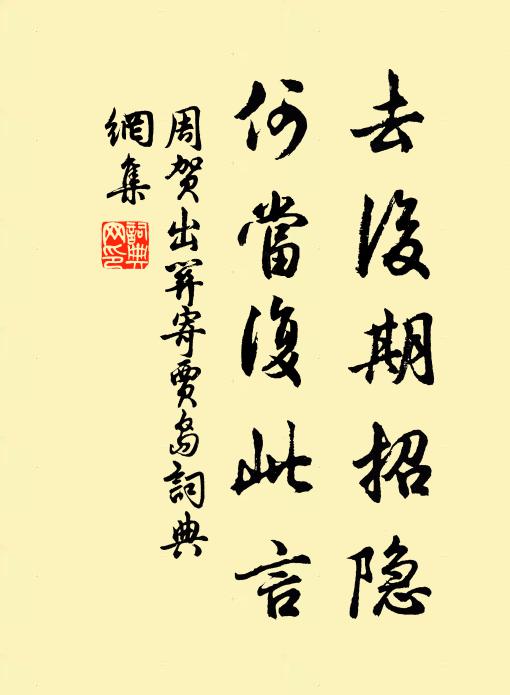 去後期招隐
何當復此言
周贺出關寄贾島詞典
網集
詞典
网印